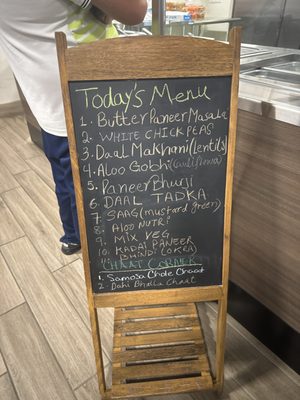 Today's Menu
1. Butter Paneer Masala
2. WHITE CHICKPEAS
3. Daal Makhani (Lentils)
4. Aloo Gobhi (Cauliflower)
5. Paneer Bhurji
6. DAAL TADKA
7. SAAG (mustard green)
8. Aloo NUTRI
9. MIX VEG
10. KADAI PANEER
11. BHINDI (OKRA)
CHAAT CORNER
1. Samosa Chole Chaat
2. Dahi Bhalla Chaat